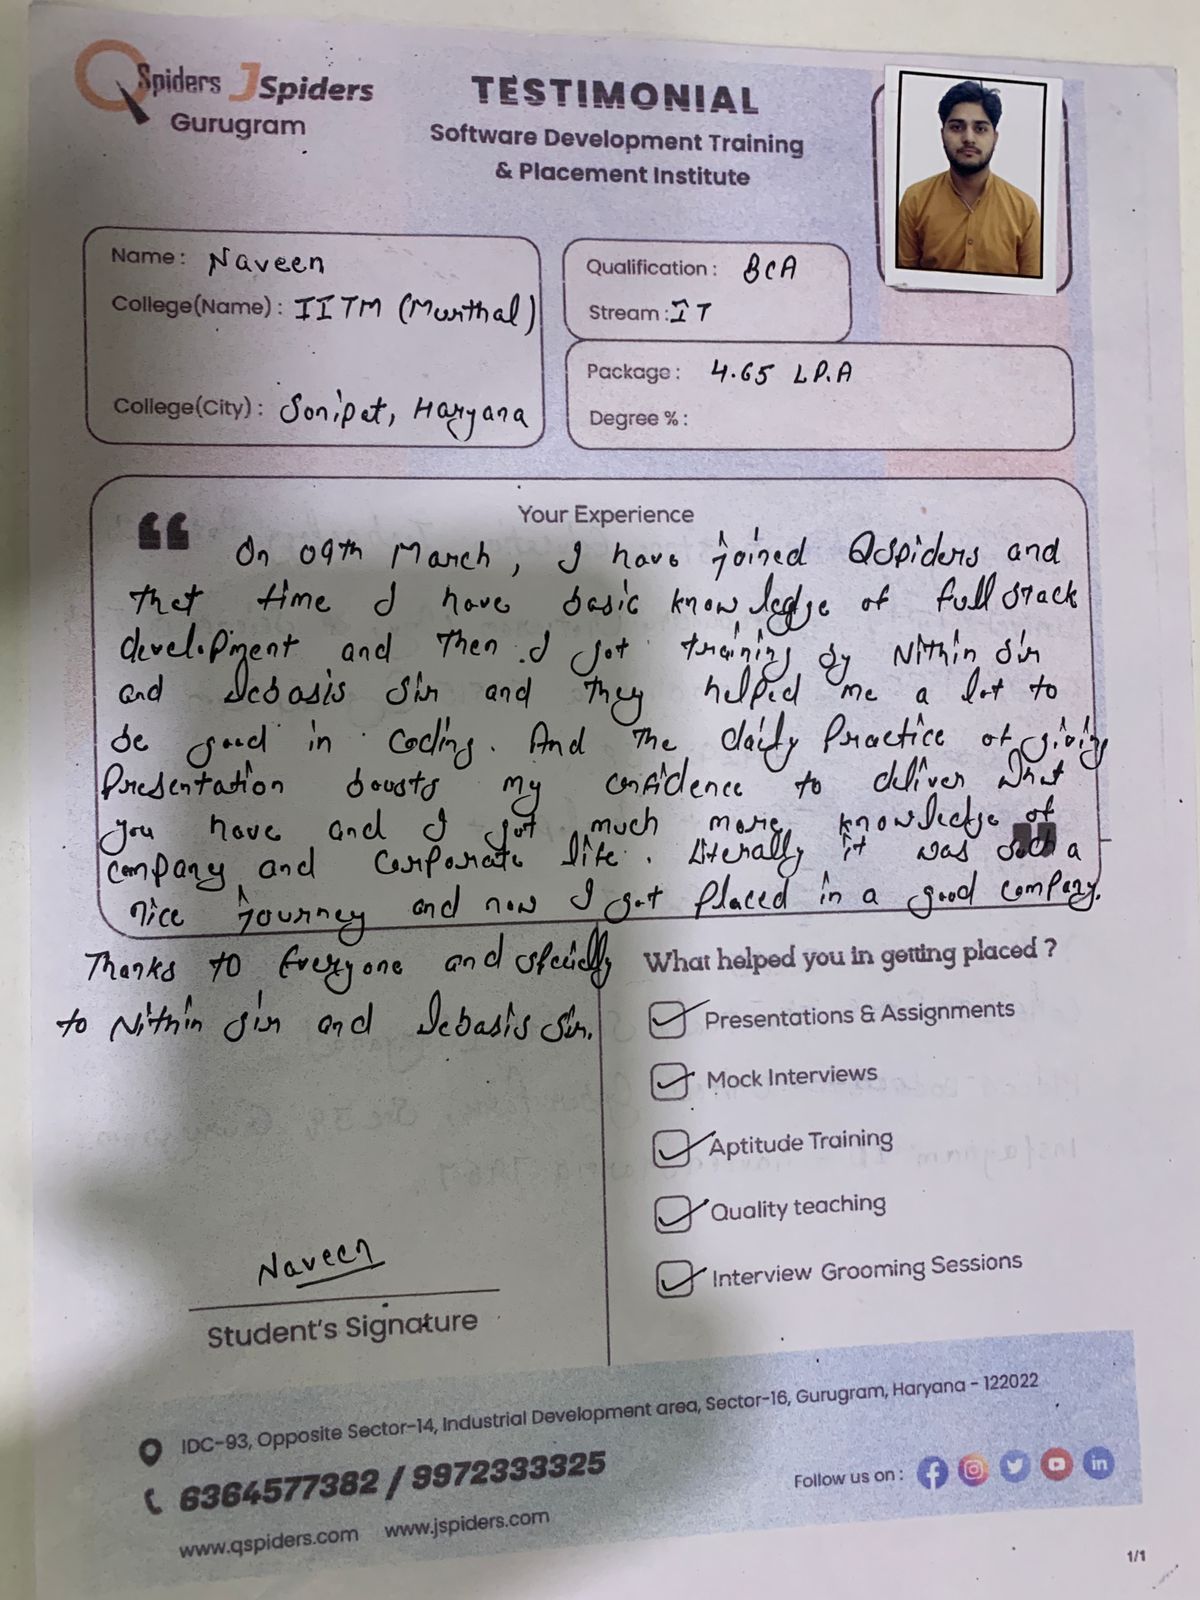 QSpiders JSpiders
Gurugram
TESTIMONIAL
Software Development Training
& Placement Institute
Name : Naveen
College(Name) : IITM (Murthal)
College(City) : Sonipat, Haryana
Qualification : BCA
Stream : IT
Package : 4.65 LP.A
Degree % :
Your Experience
On 09th March, I have joined QSpiders and
that time I have basic knowledge of full stack
development and then I got training by Nithin Sir
and Debasis Sir and they helped me a lot to
be good in coding. And the daily practice of giving
Presentation boosts my confidence to deliver what
you have and I got much more knowledge of
company and corporate life. Literally it was such a
nice journey and now I got placed in a good company.
Thanks to Everyone and specially
to Nithin Sir and Debasis Sir.
Naveen
Student's Signature
What helped you in getting placed ?
Presentations & Assignments
Mock Interviews
Aptitude Training
Quality teaching
Interview Grooming Sessions
IDC-93, Opposite Sector-14, Industrial Development area, Sector-16, Gurugram, Haryana - 122022
6364577382 / 9972333325
www.qspiders.com www.jspiders.com
Follow us on :
1/1